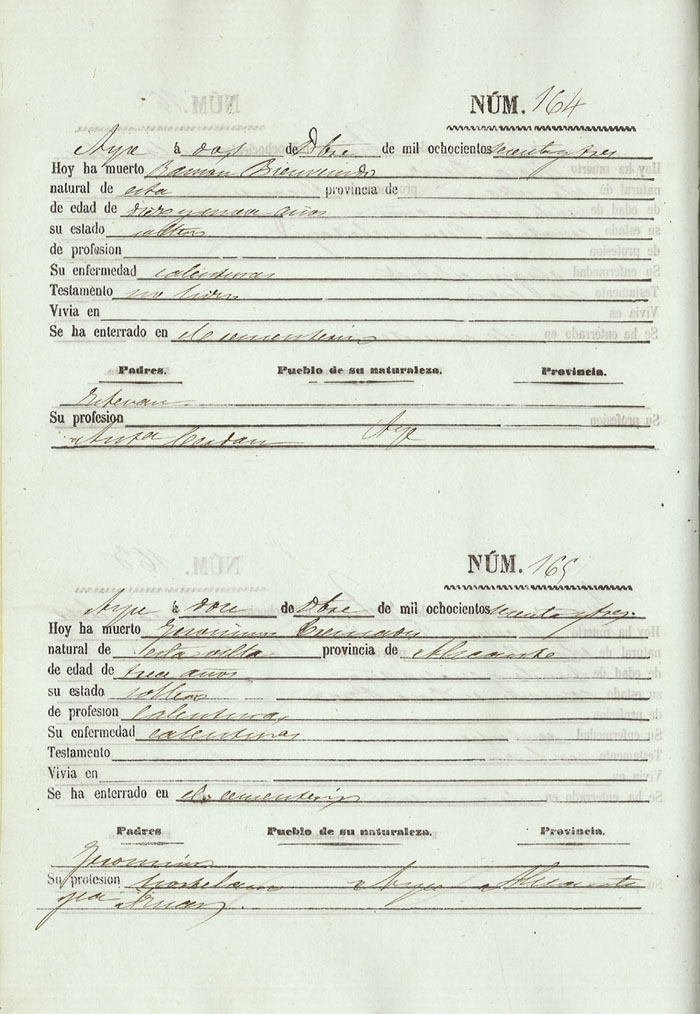 NÚM. 164
Aspe á dos de Dbre de mil ochocientos sesenta y tres
Hoy ha muerto Ramon Bienvenido
natural de esta provincia de
de edad de años
su estado soltero
de profesion
Su enfermedad calenturas
Testamento no hizo
Vivia en
Se ha enterrado en el cementerio
Padres. Pueblo de su naturaleza. Provincia.
Estevan
Su profesion
Aspe
NÚM. 165
Aspe á doce de Dbre de mil ochocientos sesenta y tres.
Hoy ha muerto Jeronimo Cremades
natural de esta villa provincia de Alicante
de edad de trece años
su estado soltero
de profesion calenturas
Su enfermedad calenturas
Testamento
Vivia en
Se ha enterrado en el cementerio
Padres Pueblo de su naturaleza. Provincia.
Jeronimo
Su profesion Aspe Alicante